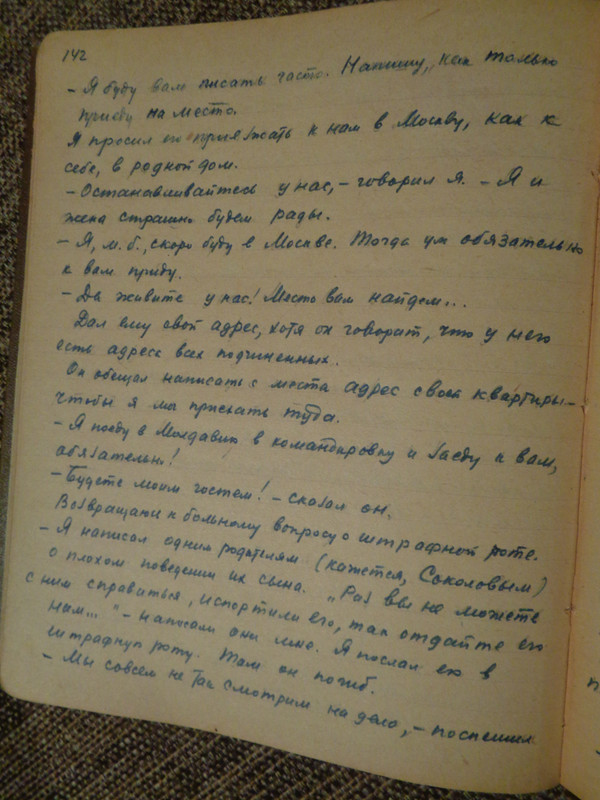 142
- Я буду вам писать часто. Напишу, как только
приеду на место.
Я просил его приезжать к нам в Москву, как к
себе, в родной дом.
- Останавливайтесь у нас, - говорил я. - Я и
жена страшно будем рады.
- Я, м. б., скоро буду в Москве. Тогда уж обязательно
к вам приду.
- Да живите у нас! Место вам найдем...
Дал ему свой адрес, хотя он говорит, что у него
есть адреса всех подчиненных.
Он обещал написать с места адрес своей квартиры -
чтобы я мог приехать туда.
- Я поеду в Молдавию в командировку и заеду к вам,
обязательно!
- Будете моим гостем! - сказал он.
Возвращаюсь к больному вопросу о штрафной роте.
- Я написал одним родителям (кажется, Соколовым)
о плохом поведении их сына. „Раз вы не можете
с ним справиться, испортили его, так отдайте его
нам..." - написали они мне. Я послал его в
штрафную роту. Там он погиб.
- Мы совсем не так смотрим на дело, - поспешил